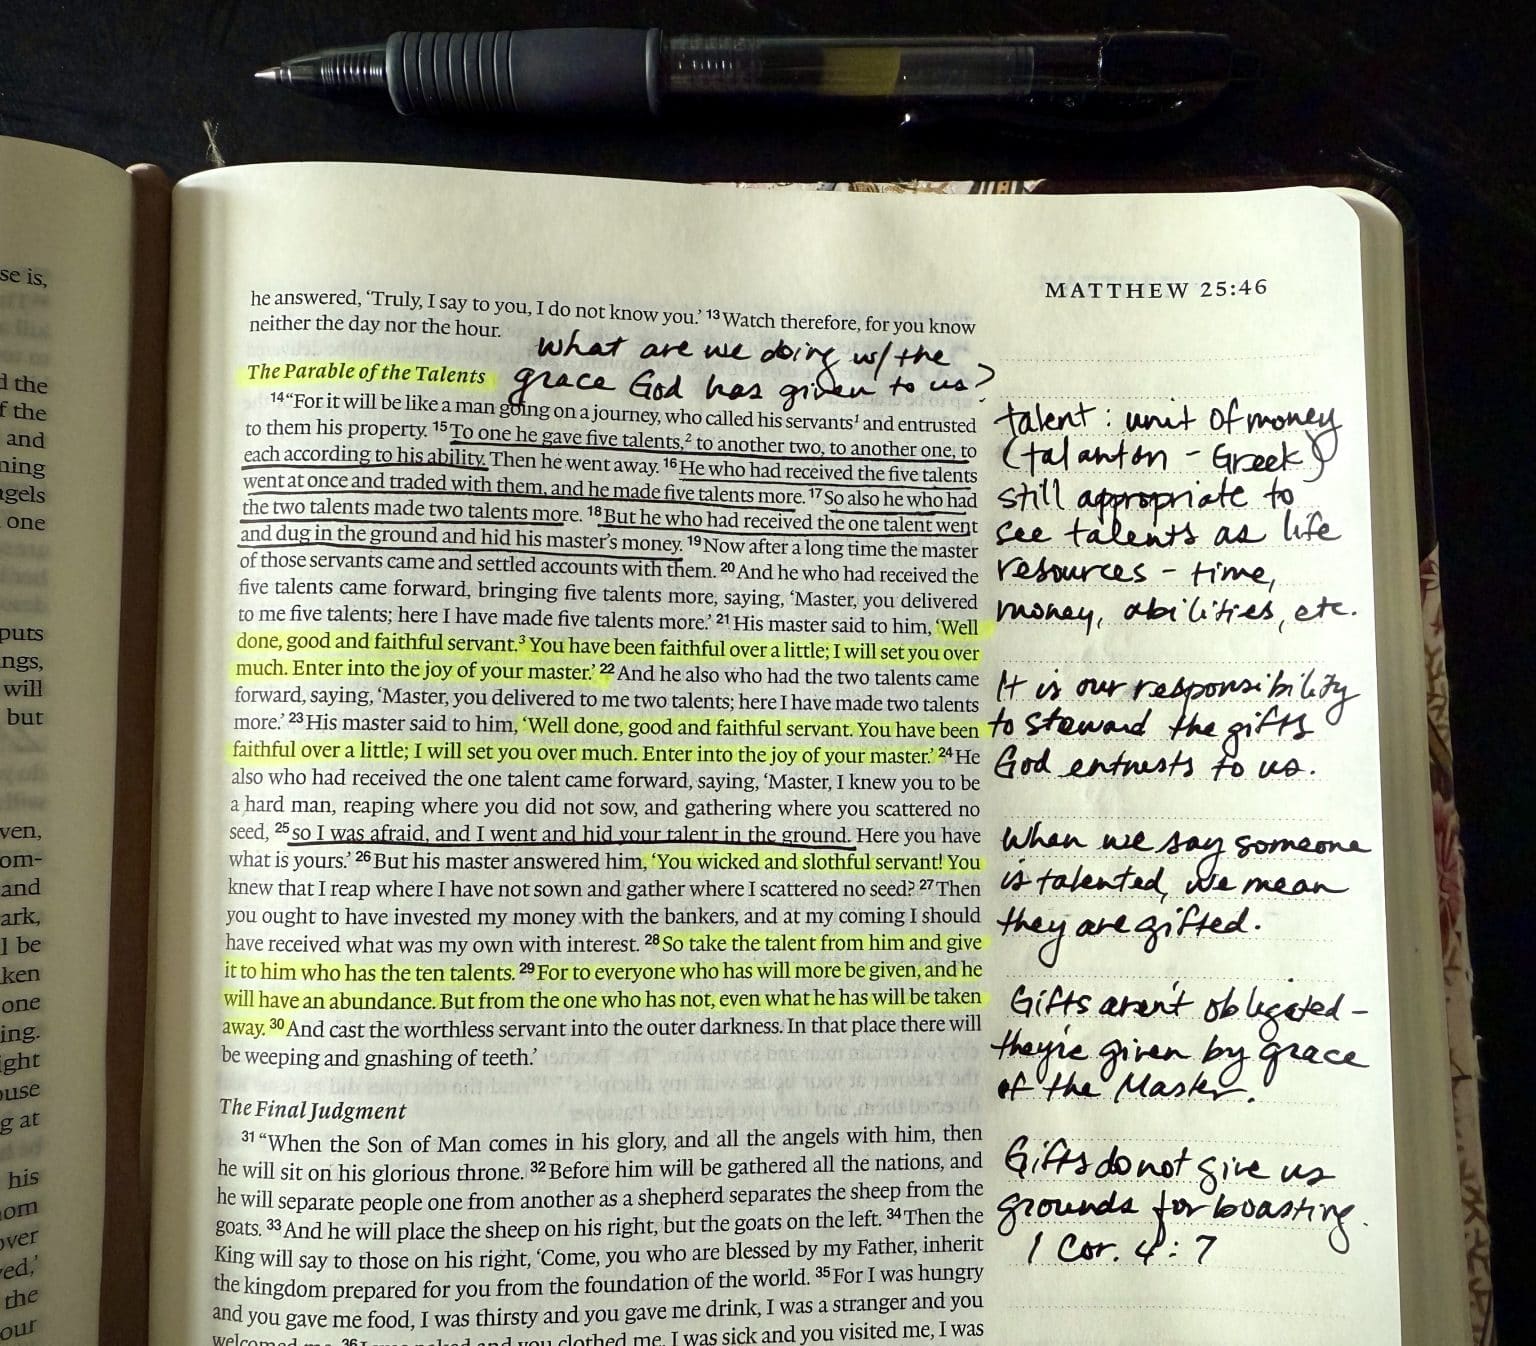 se is,
d the
f the
and
ning
ngels
one
puts
ngs,
will
but
ven,
om-
and
ark,
l be
ken
one
ing.
ight
ouse
g at
his
om
over
ed,’
the
our
MATTHEW 25:46
he answered, ‘Truly, I say to you, I do not know you.’ 13 Watch therefore, for you know
neither the day nor the hour.
what are we doing w/ the
grace God has given to us?
The Parable of the Talents
14 “For it will be like a man going on a journey, who called his servants1 and entrusted
to them his property. 15 To one he gave five talents,2 to another two, to another one, to
each according to his ability. Then he went away. 16 He who had received the five talents
went at once and traded with them, and he made five talents more. 17 So also he who had
the two talents made two talents more. 18 But he who had received the one talent went
and dug in the ground and hid his master’s money. 19 Now after a long time the master
of those servants came and settled accounts with them. 20 And he who had received the
five talents came forward, bringing five talents more, saying, ‘Master, you delivered
to me five talents; here I have made five talents more.’ 21 His master said to him, ‘Well
done, good and faithful servant.3 You have been faithful over a little; I will set you over
much. Enter into the joy of your master.’ 22 And he also who had the two talents came
forward, saying, ‘Master, you delivered to me two talents; here I have made two talents
more.’ 23 His master said to him, ‘Well done, good and faithful servant. You have been
faithful over a little; I will set you over much. Enter into the joy of your master.’ 24 He
also who had received the one talent came forward, saying, ‘Master, I knew you to be
a hard man, reaping where you did not sow, and gathering where you scattered no
seed, 25 so I was afraid, and I went and hid your talent in the ground. Here you have
what is yours.’ 26 But his master answered him, ‘You wicked and slothful servant! You
knew that I reap where I have not sown and gather where I scattered no seed? 27 Then
you ought to have invested my money with the bankers, and at my coming I should
have received what was my own with interest. 28 So take the talent from him and give
it to him who has the ten talents. 29 For to everyone who has will more be given, and he
will have an abundance. But from the one who has not, even what he has will be taken
away. 30 And cast the worthless servant into the outer darkness. In that place there will
be weeping and gnashing of teeth.’
The Final Judgment
31 “When the Son of Man comes in his glory, and all the angels with him, then
he will sit on his glorious throne. 32 Before him will be gathered all the nations, and
he will separate people one from another as a shepherd separates the sheep from the
goats. 33 And he will place the sheep on his right, but the goats on the left. 34 Then the
King will say to those on his right, ‘Come, you who are blessed by my Father, inherit
the kingdom prepared for you from the foundation of the world. 35 For I was hungry
and you gave me food, I was thirsty and you gave me drink, I was a stranger and you
welcomed me, 36 I was naked and you clothed me, I was sick and you visited me, I was
talent: unit of money
(talanton - Greek)
still appropriate to
see talents as life
resources - time,
money, abilities, etc.
It is our responsibility
to steward the gifts
God entrusts to us.
When we say someone
is talented, we mean
they are gifted.
Gifts aren't obligated -
they're given by grace
of the Master.
Gifts do not give us
grounds for boasting.
1 Cor. 4:7